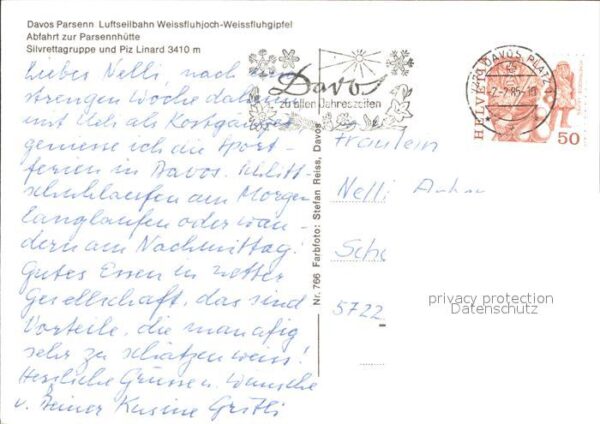 Davos Parsenn Luftseilbahn Weissfluhjoch-Weissfluhgipfel
Abfahrt zur Parsennhütte
Silvrettagruppe und Piz Linard 3410 m
Liebes Nelli, nach
strengen Woche daheim
mit Ueli als Kostgänger
geniesse ich die Sport-
ferien in Davos. Schlitt-
schuhlaufen am Morgen
Langlaufen oder wan-
dern am Nachmittag!
Gutes Essen in netter
Gesellschaft, das sind
Vorteile, die man
sehr zu schätzen weiss!
Herzliche Grüsse u. Wünsche
v. Deiner Kusine Gritli
Nr. 766 Farbfoto: Stefan Reiss, Davos
Davos
zu allen Jahreszeiten
DAVOS PLATZ 1
-2.-2.85-18
HELVETIA
50
Fräulein
Nelli
Sch
5722
privacy protection
Datenschutz